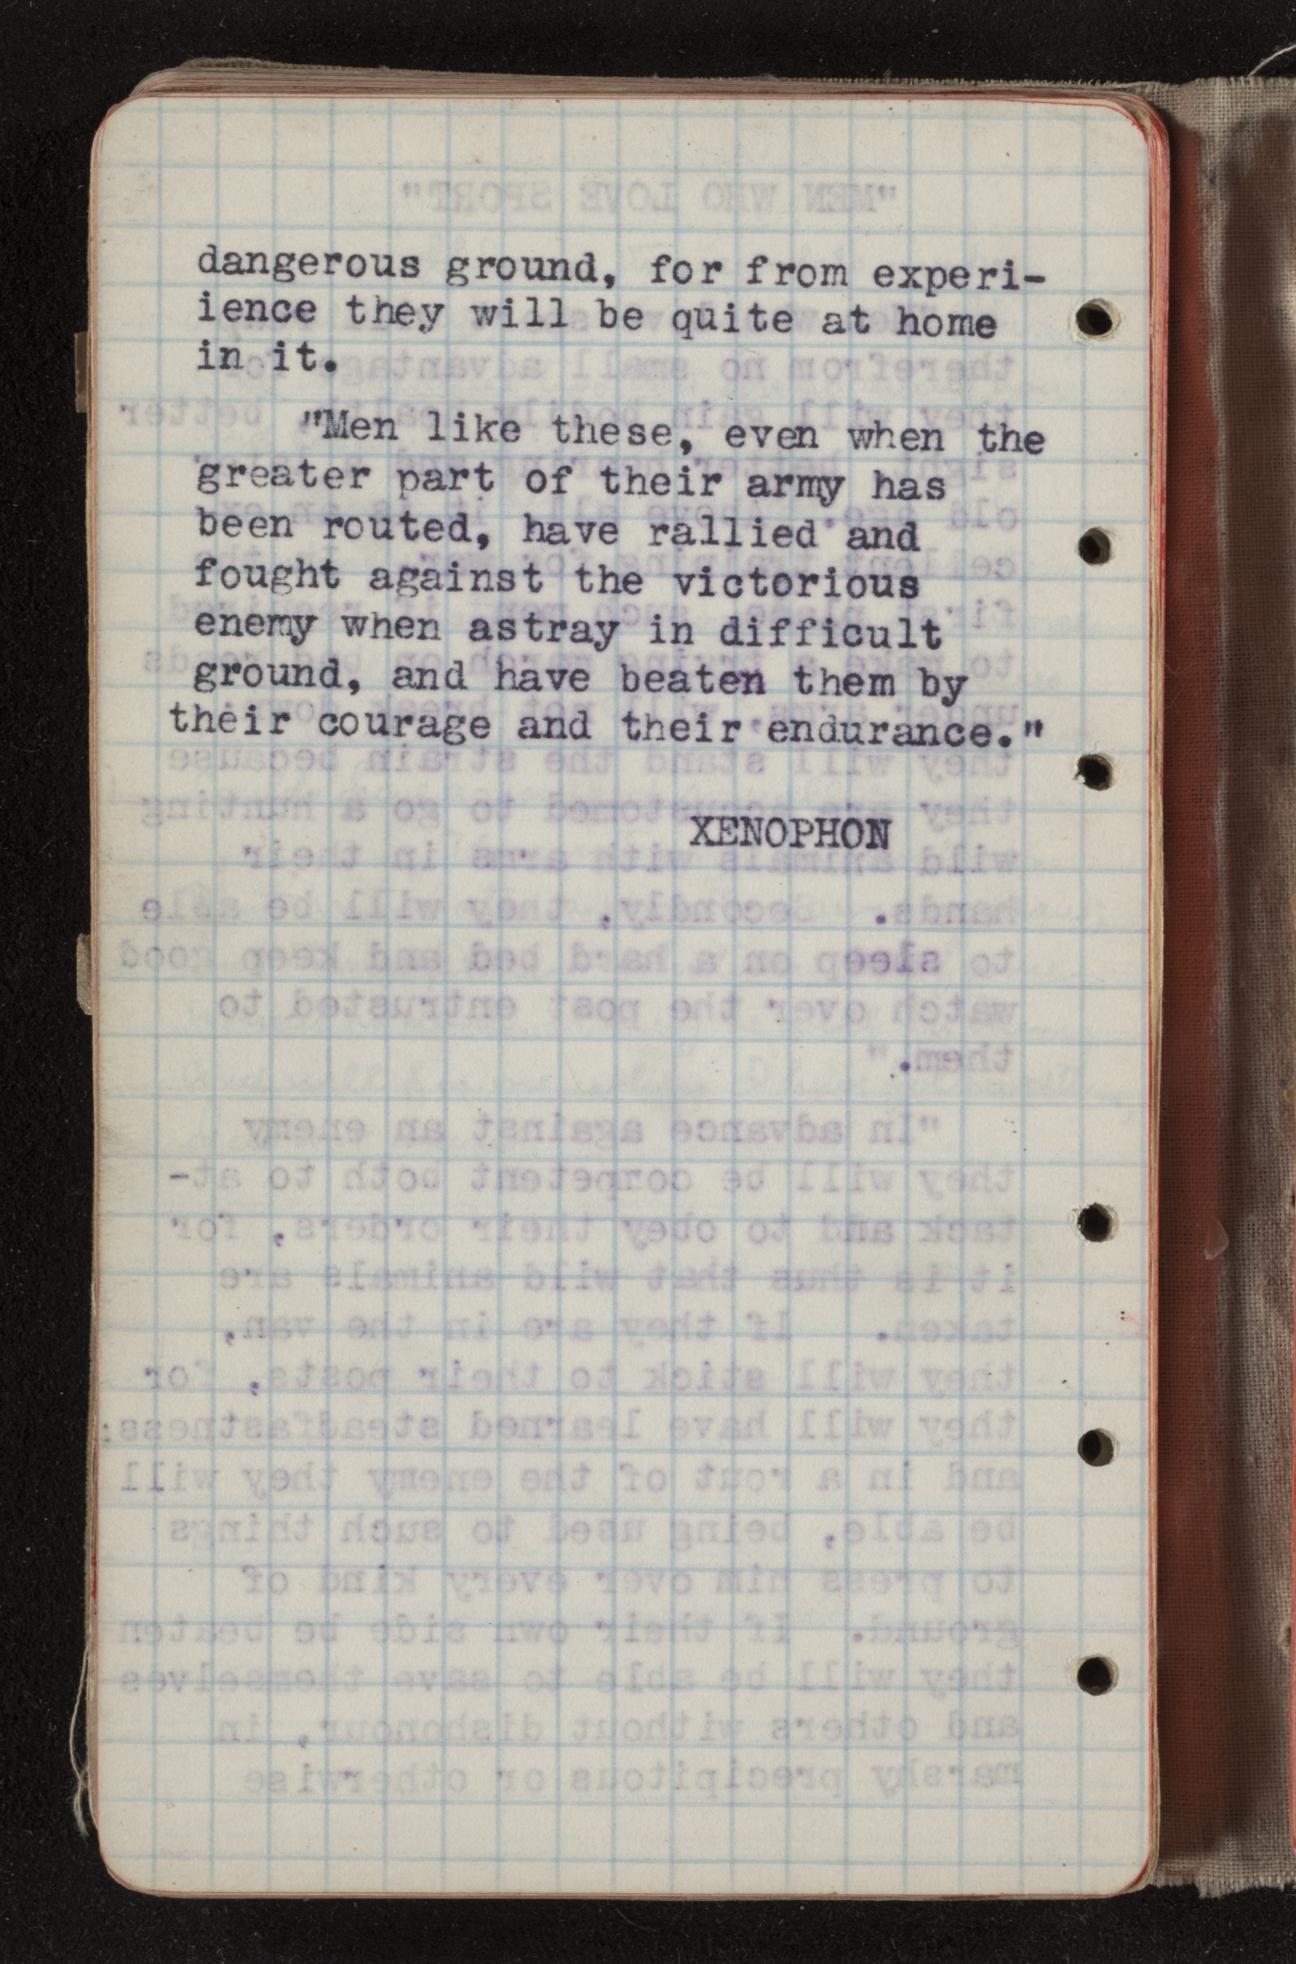 dangerous ground, for from experi-
ience they will be quite at home
in it.
"Men like these, even when the
greater part of their army has
been routed, have rallied and
fought against the victorious
enemy when astray in difficult
ground, and have beaten them by
their courage and their endurance."
XENOPHON